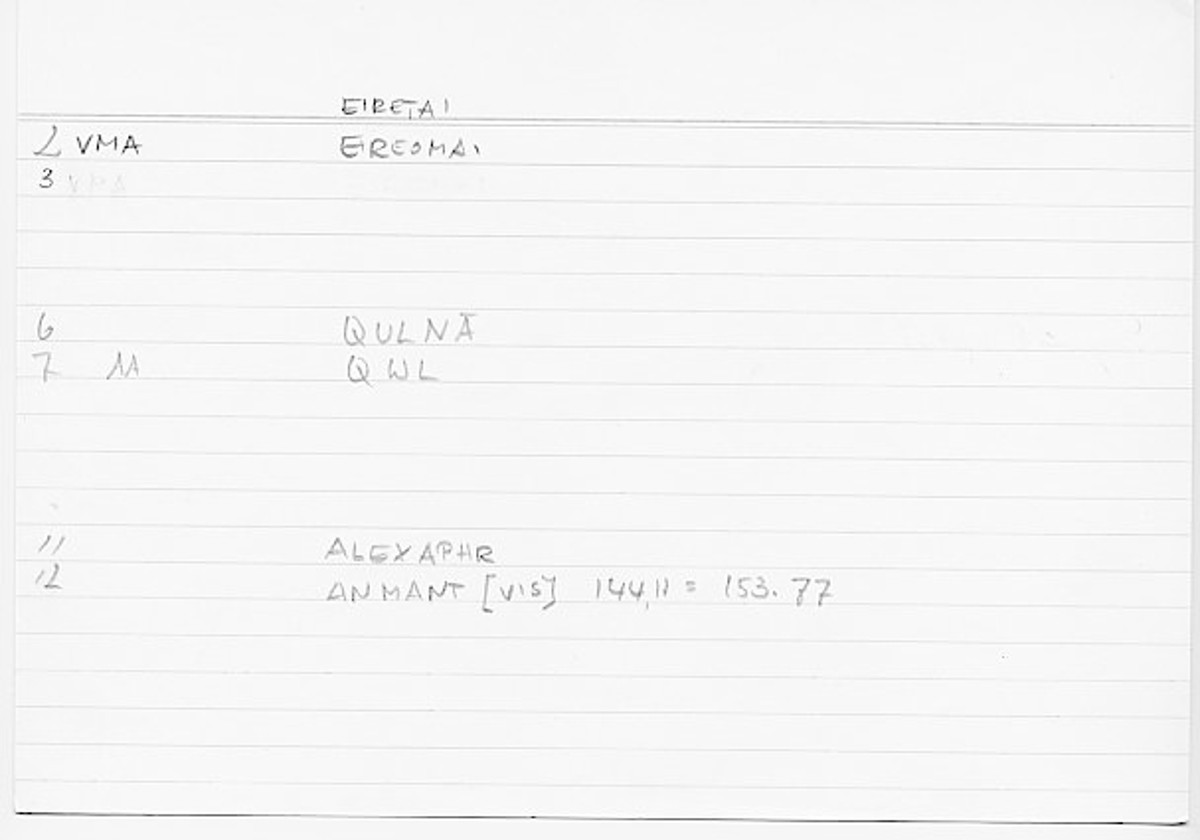 EIRETAI
2 VMA EIREOMAI
3 VMA
6 QULNĀ
7 11 QWL
11 ALEXAPHR
12 ANMANT [VIS] 144,11 = 153.77